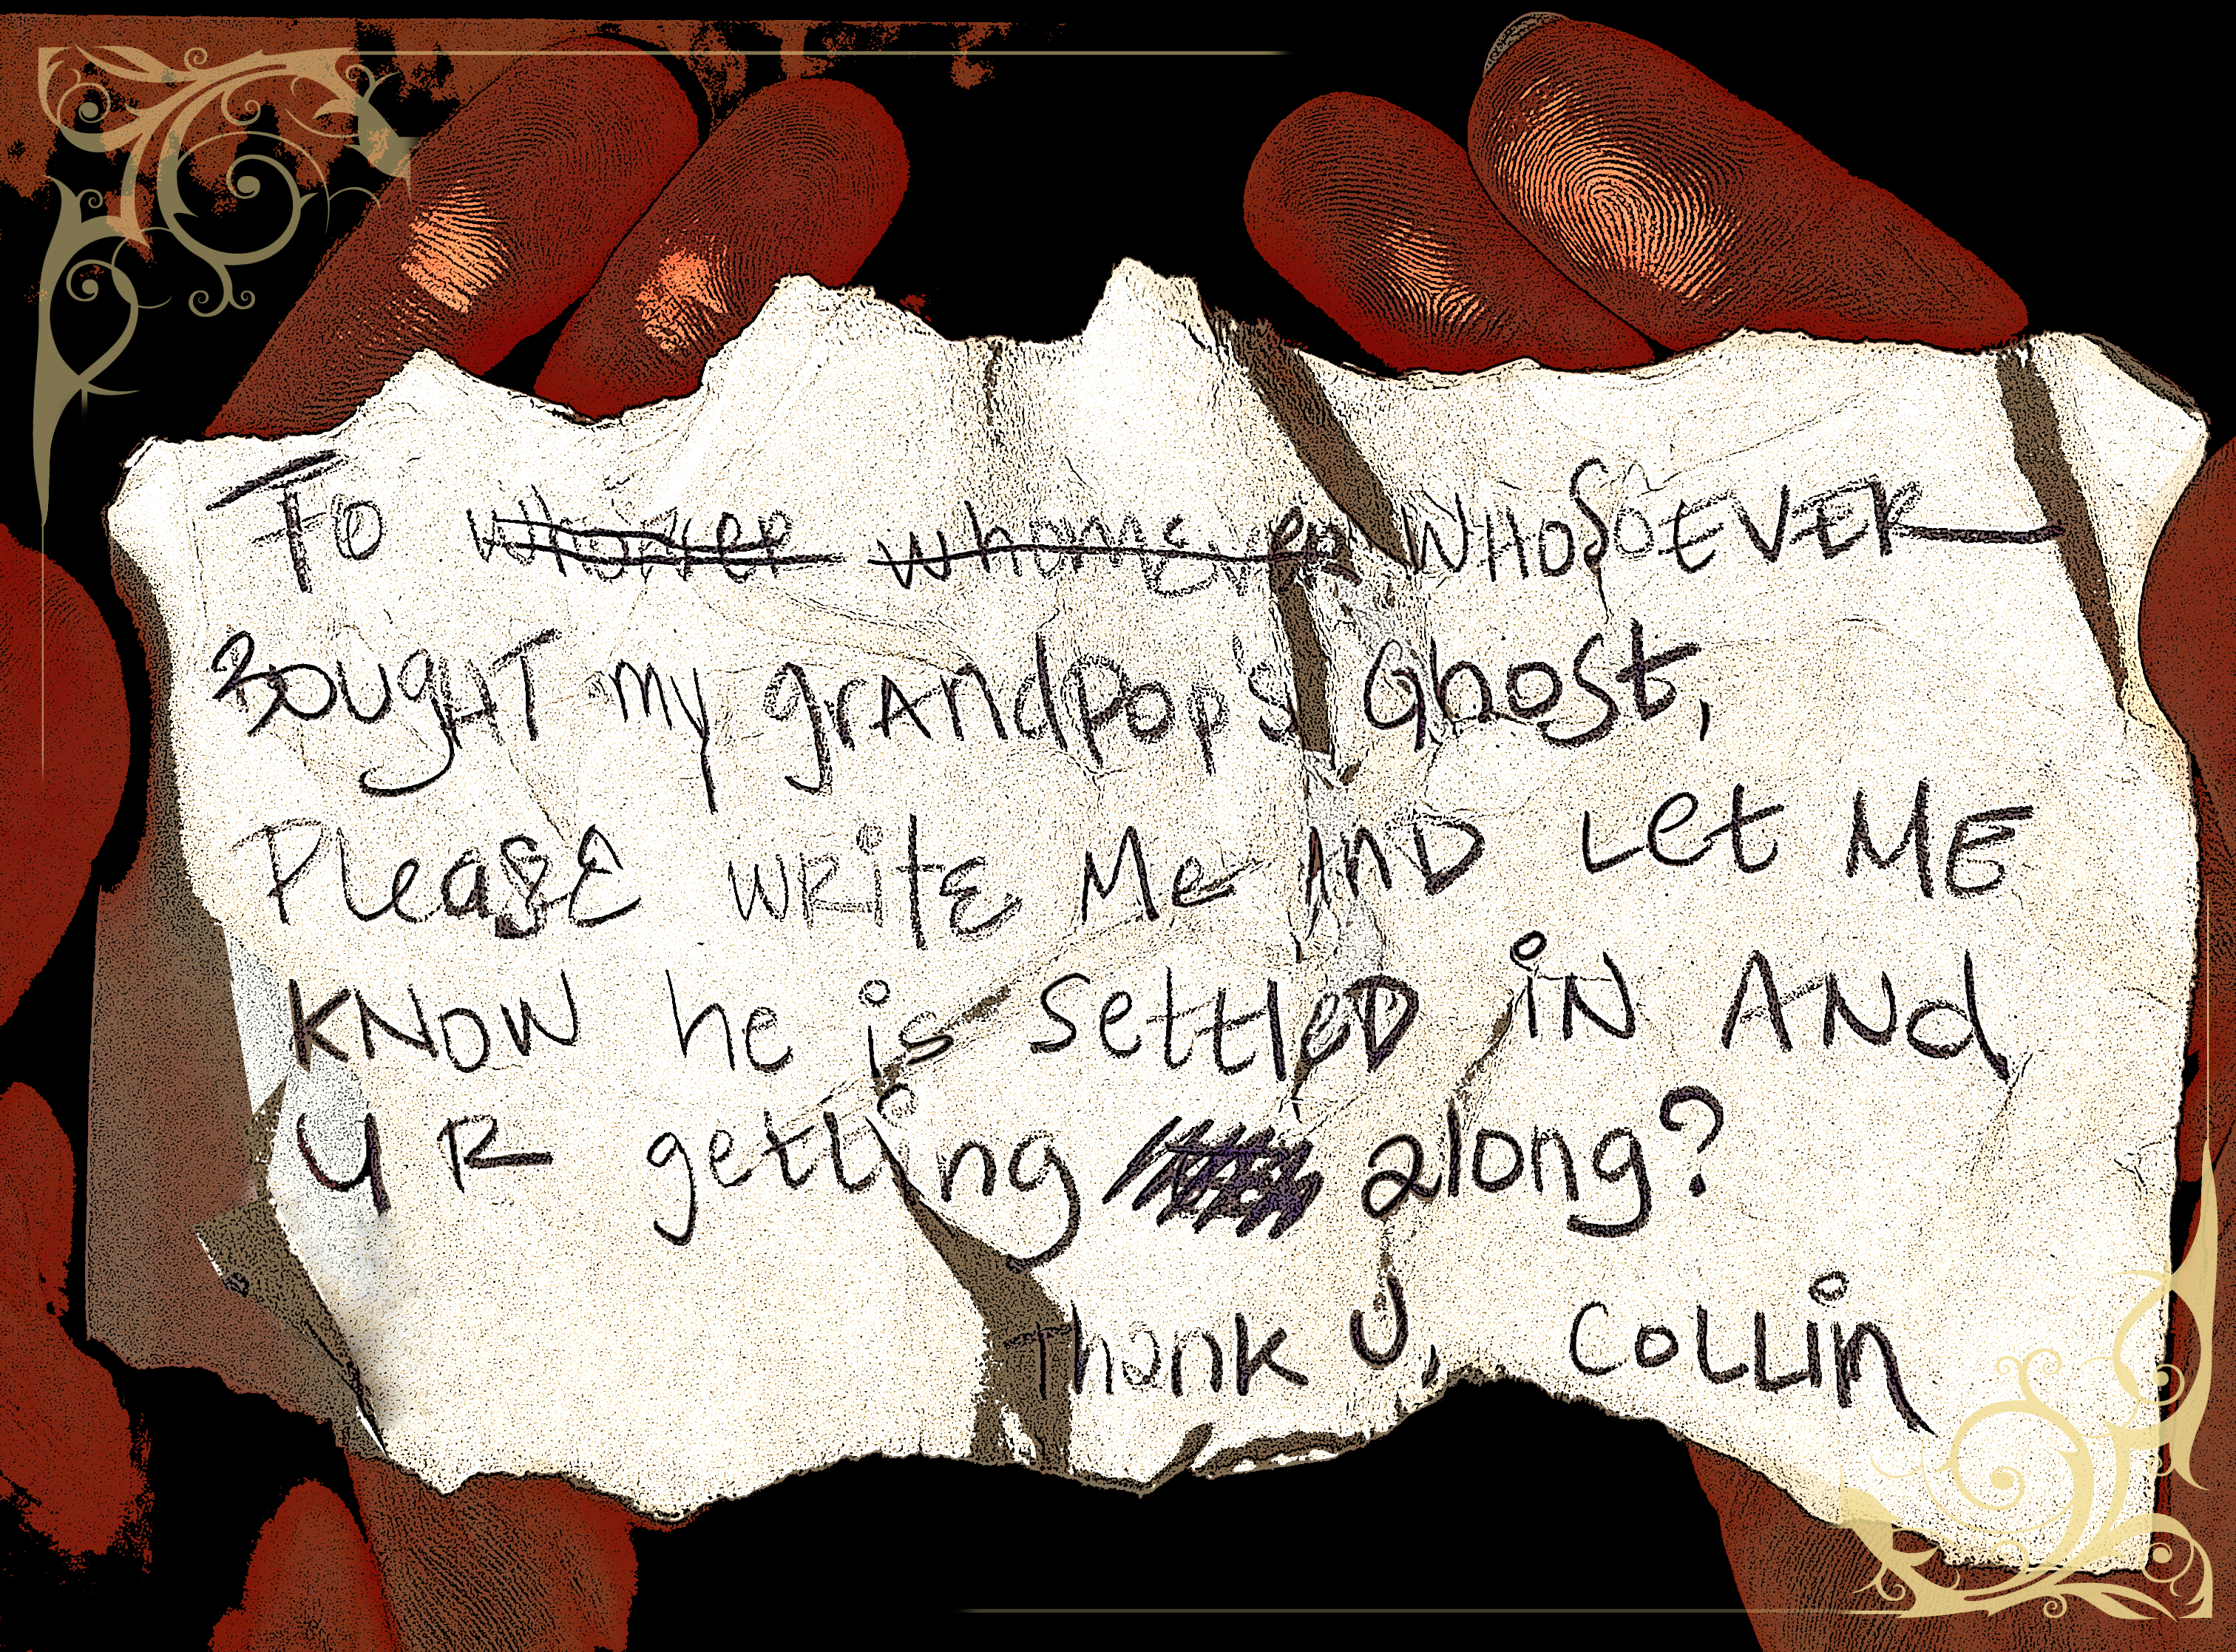 To whomever whomsever WHOSOEVER
BOUgHT my grAndpop's Ghost,
PleasE WRitE Me AnD Let ME
KNOW he is SettleD iN ANd
U R getting along?
Thank U, CoLLin